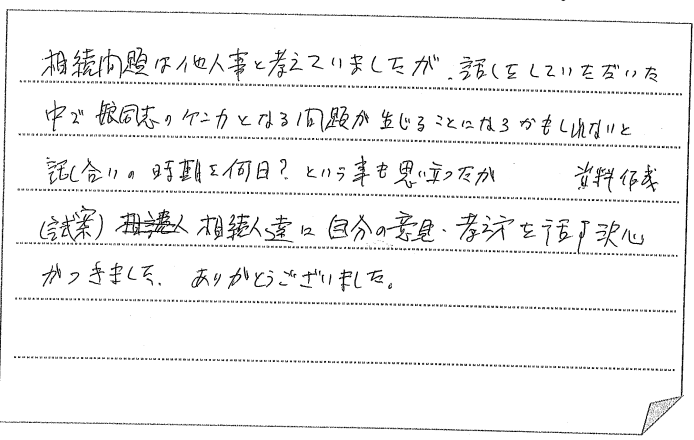 相続問題は他人事と考えていましたが、話しをしていただいた
中で娘同志のケンカとなる問題が生じることになるかもしれないと
話し合いの時期を何日？という事も思い立ったが 資料作成
(試案) 相続人達に自分の意見・考え方を話す決心
がつきました、ありがとうございました。